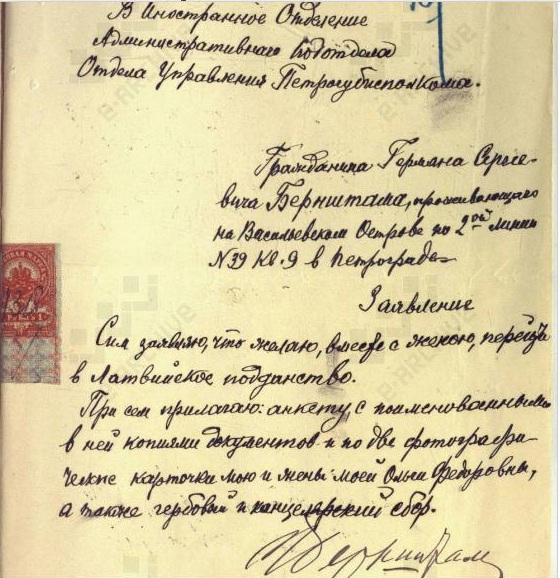 В Иностранное Отделение
Административнаго Подотдела
Отдела Управления Петрогубисполкома.
Гражданина Германа Сергее-
вича Бернштама, проживающаго
на Васильевском Острове по 2ой линии
N39 кв. 9 в Петрограде
Заявление
Сим заявляю, что желаю, вместе с женою, перейти
в Латвийское подданство.
При сем прилагаю: анкету с поименованными
в ней копиями документов и по две фотографи-
ческие карточки мою и жены моей Ольги Федоровны,
а также гербовый и канцелярский сбор.
Бернштам